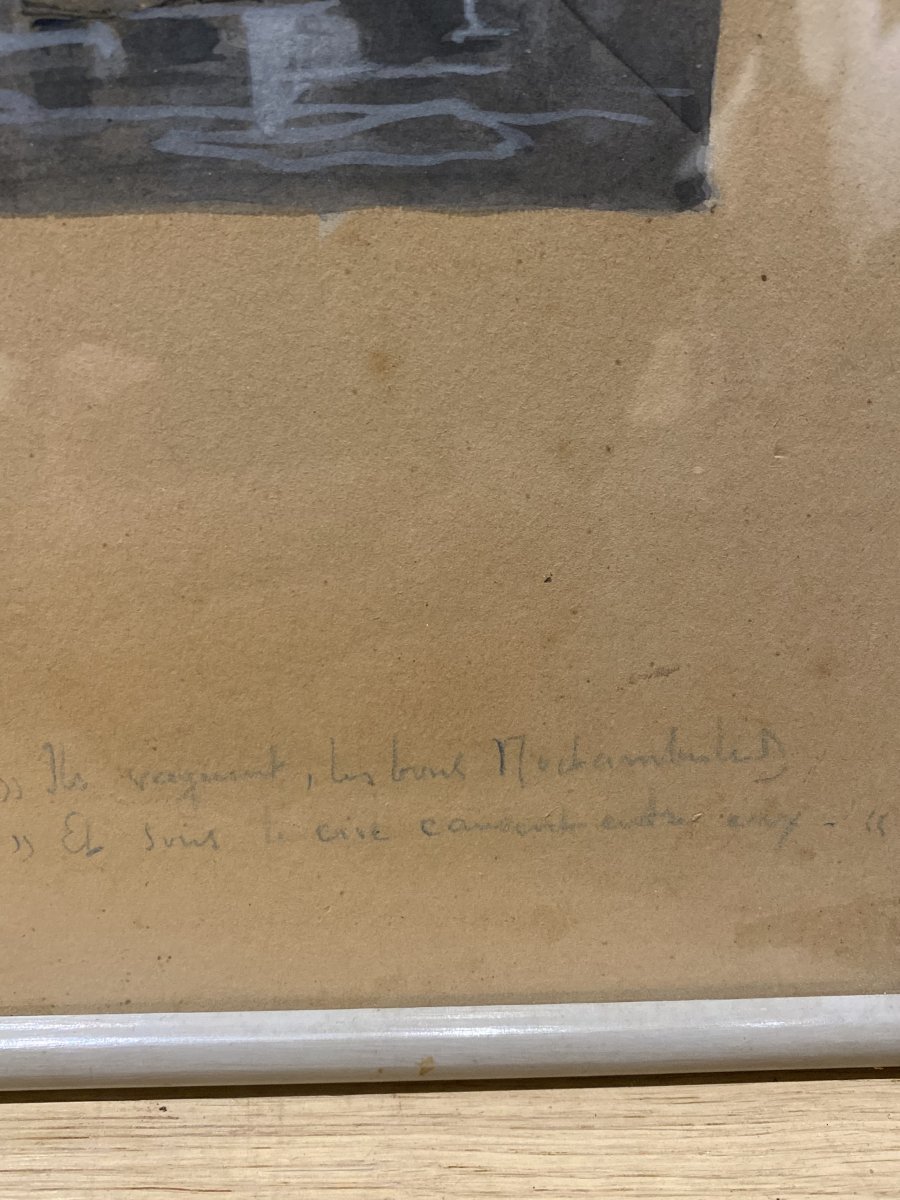 » Ils voguent, les bons Noctambules
» Et sous le ciré causent entre eux - "